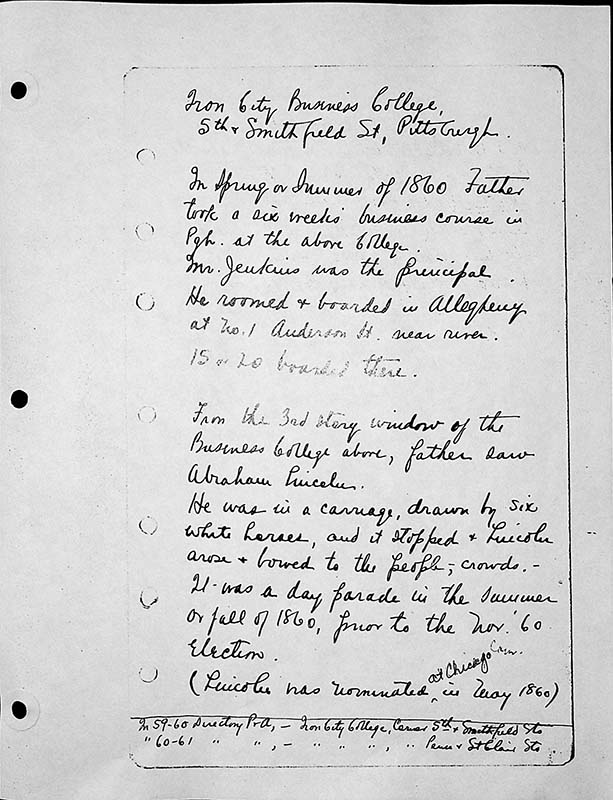 Iron City Business College,
5th & Smithfield St, Pittsburgh.
In Spring or Summer of 1860 Father
took a six weeks business course in
Pgh. at the above College.
Mr. Jenkins was the principal.
He roomed & boarded in Allegheny
at No. 1 Anderson St. near river.
15 or 20 boarded there.
From the 3rd story window of the
Business College above, father saw
Abraham Lincoln.
He was in a carriage, drawn by six
white horses, and it stopped & Lincoln
arose & bowed to the people, - crowds. -
It was a day parade in the summer
or fall of 1860, prior to the Nov. '60
Election.
at Chicago Conv.
(Lincoln was nominated ^ in May 1860)
In 59-60 Directory , - Iron City College, Corner 5th & Smithfield Sts
" 60-61 " " " , - " " " , " Penn & St Clair Sts